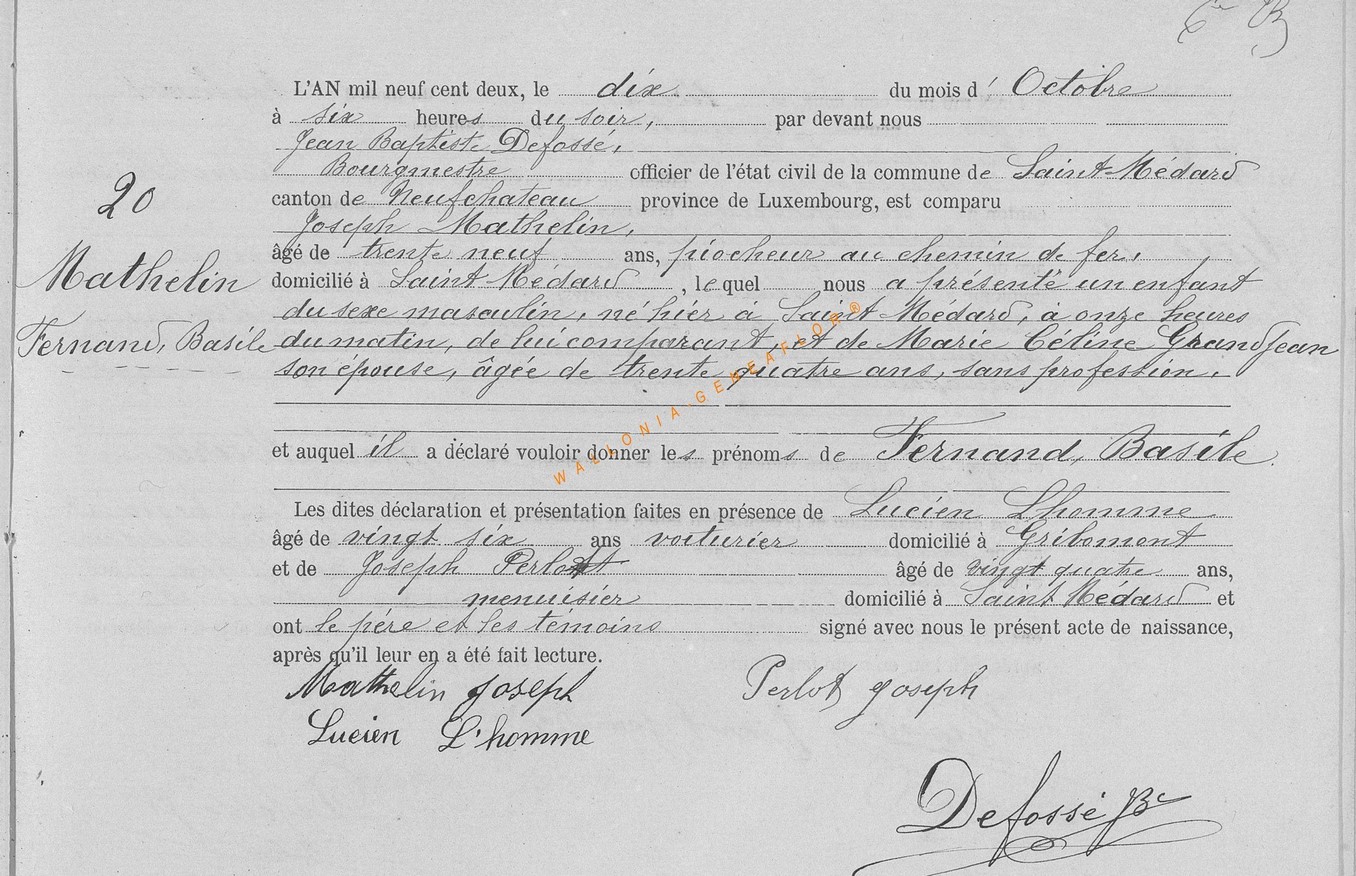 L'AN mil neuf cent deux, le dix du mois d' Octobre
à six heures du soir, par devant nous
Jean Baptiste Defossé,
Bourgmestre officier de l'état civil de la commune de Saint-Médard
20
canton de Neufchateau province de Luxembourg, est comparu
Joseph Mathelin,
âgé de trente neuf ans, piocheur au chemin de fer,
Mathelin
domicilié à Saint Médard, lequel nous a présenté un enfant
du sexe masculin, né hier à Saint Médard, à onze heures
Fernand, Basile
du matin, de lui comparant, et de Marie Céline Grandjean
son épouse, âgée de trente quatre ans, sans profession.
et auquel il a déclaré vouloir donner les prénoms de Fernand, Basile.
WALLONIA-GENEAFLOR®
Les dites déclaration et présentation faites en présence de Lucien Lhomme
âgé de vingt six ans voiturier domicilié à Gribomont
et de Joseph Perlot âgé de vingt quatre ans,
menuisier domicilié à Saint Médard et
ont le père et les témoins signé avec nous le présent acte de naissance,
après qu'il leur en a été fait lecture.
Mathelin Joseph Perlot Joseph
Lucien L'homme
Defossé